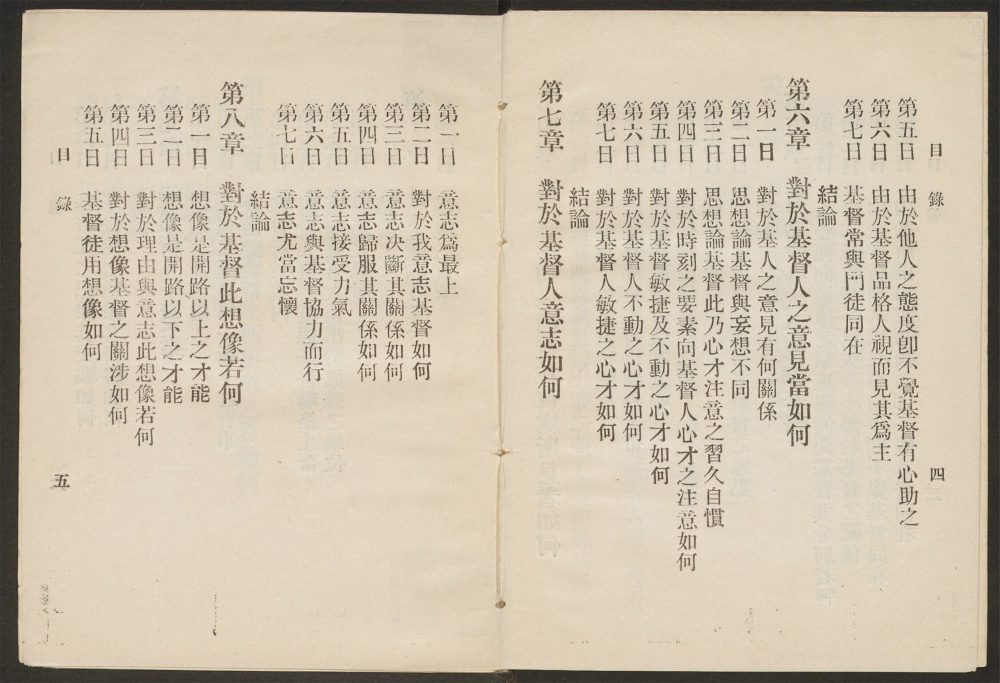 目錄 四
第五日 由於他人之態度卽不覺基督有心助之
第六日 由於基督品格人視而見其爲主
第七日 基督常與門徒同在
結論
第六章 對於基督人之意見當如何
第一日 對於基人之意見有何關係
第二日 思想論基督與妄想不同
第三日 思想論基督此乃心才注意之習久自慣
第四日 對於時刻之要素向基督人心才之注意如何
第五日 對於基督敏捷及不動之心才如何
第六日 對於基督人不動之心才如何
第七日 對於基督人敏捷之心才如何
結論
第七章 對於基督人意志如何
第一日 意志爲最上
第二日 對於我意志基督如何
第三日 意志決斷其關係如何
第四日 意志歸服其關係如何
第五日 意志接受力氣
第六日 意志與基督協力而行
第七日 意志尤當忘懷
結論
第八章 對於基督此想像若何
第一日 想像是開路以上之才能
第二日 想像是開路以下之才能
第三日 對於理由與意志此想像若何
第四日 對於想像基督之關涉如何
第五日 基督徒用想像如何
目錄 五